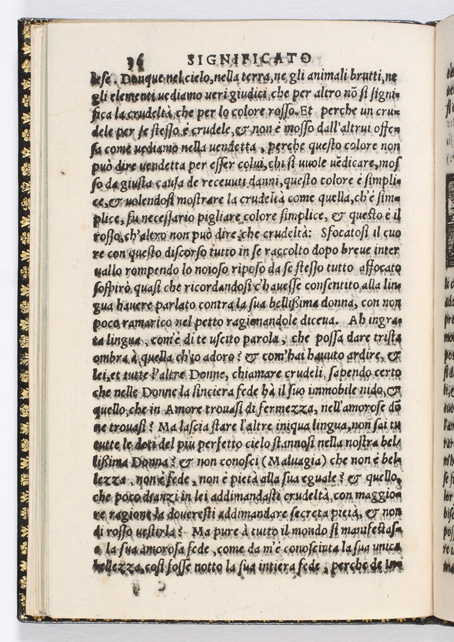 36 SIGNIFICATO
lese. Dunque nel cielo, nella terra, ne gli animali brutti, ne
gli elementi uediamo ueri giudici che per altro nō si signi
fica la crudeltà che per lo colore rosso. Et perche un cru-
dele per se stesso è crudele, & non è mosso dall'altrui offen
sa come uediamo nella uendetta, perche questo colore non
può dire uendetta per esser colui, chi si uuole uēdicare, mos
so da giusta causa de receuuti danni, questo colore è simpli
ce, & uolendosi mostrare la crudeltà come quella, ch'è sim-
plice, fu necessario pigliare colore simplice, & questo è il
rosso, ch'altro non può dire, che crudeltà: Sfocatosi il cuo
re con questo discorso tutto in se raccolto dopo breue inter
uallo rompendo lo noioso riposo da se stesso tutto affocato
sospirò quasi che ricordandosi c'hauesse consentito alla lin
gua hauere parlato contra la sua bellissima donna, con non
poco ramarico nel petto ragionandole diceua. Ah ingra-
ta lingua, com'è di te uscito parola, che possa dare trista
ombra à quella ch'io adoro? & com'hai hauuto ardire, &
lei, et tutte l'altre Donne, chiamare crudeli, sapendo certo
che nelle Donne la sinciera fede hà il suo immobile nido, &
quello, che in Amore trouasi di fermezza, nell'amorose dō
ne trouasi? Ma lascia stare l'altre iniqua lingua, non sai tu
tutte le doti del piu perfetto cielo stannosi nella nostra bel-
lissima Donna? & non conosci (Maluagia) che non è bel-
lezza, non è fede, non è pietà alla sua eguale? & quello,
che poco dianzi in lei addimandasti crudeltà, con maggio-
re ragione la doueresti addimandare secreta pietà, & non
di rosso uestirla? Ma pure à tutto il mondo si manifestas-
se la sua amorosa fede, come da m'è conosciuta la sua unica
bellezza, cosi fosse notto la sua intiera fede, perche de